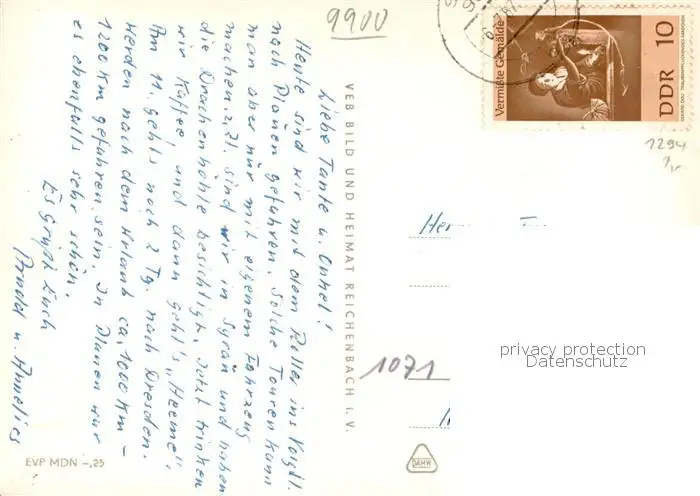 9900
Liebe Tante u. Onkel!
Heute sind wir mit dem Roller ins Vogtl.
nach Plauen gefahren. Solche Touren kann
man aber nur mit eigenem Fahrzeug
machen. Z.Zt. sind wir in Syrau und haben
die Drachenhöhle besichtigt. Jetzt trinken
wir Kaffee und dann geht's "Heeme".
Am 11. gehts noch 2 Tg. nach Dresden.
Werden nach dem Urlaub ca. 1000 Km -
1200 Km gefahren sein. In Plauen war
es ebenfalls sehr schön.
Es grüßt Euch
Arnold u. Annelies
VEB BILD UND HEIMAT REICHENBACH i. V.
EVP MDN -,25
Vermißte Gemälde
DDR 10
1294
Her
1071
privacy protection
Datenschutz